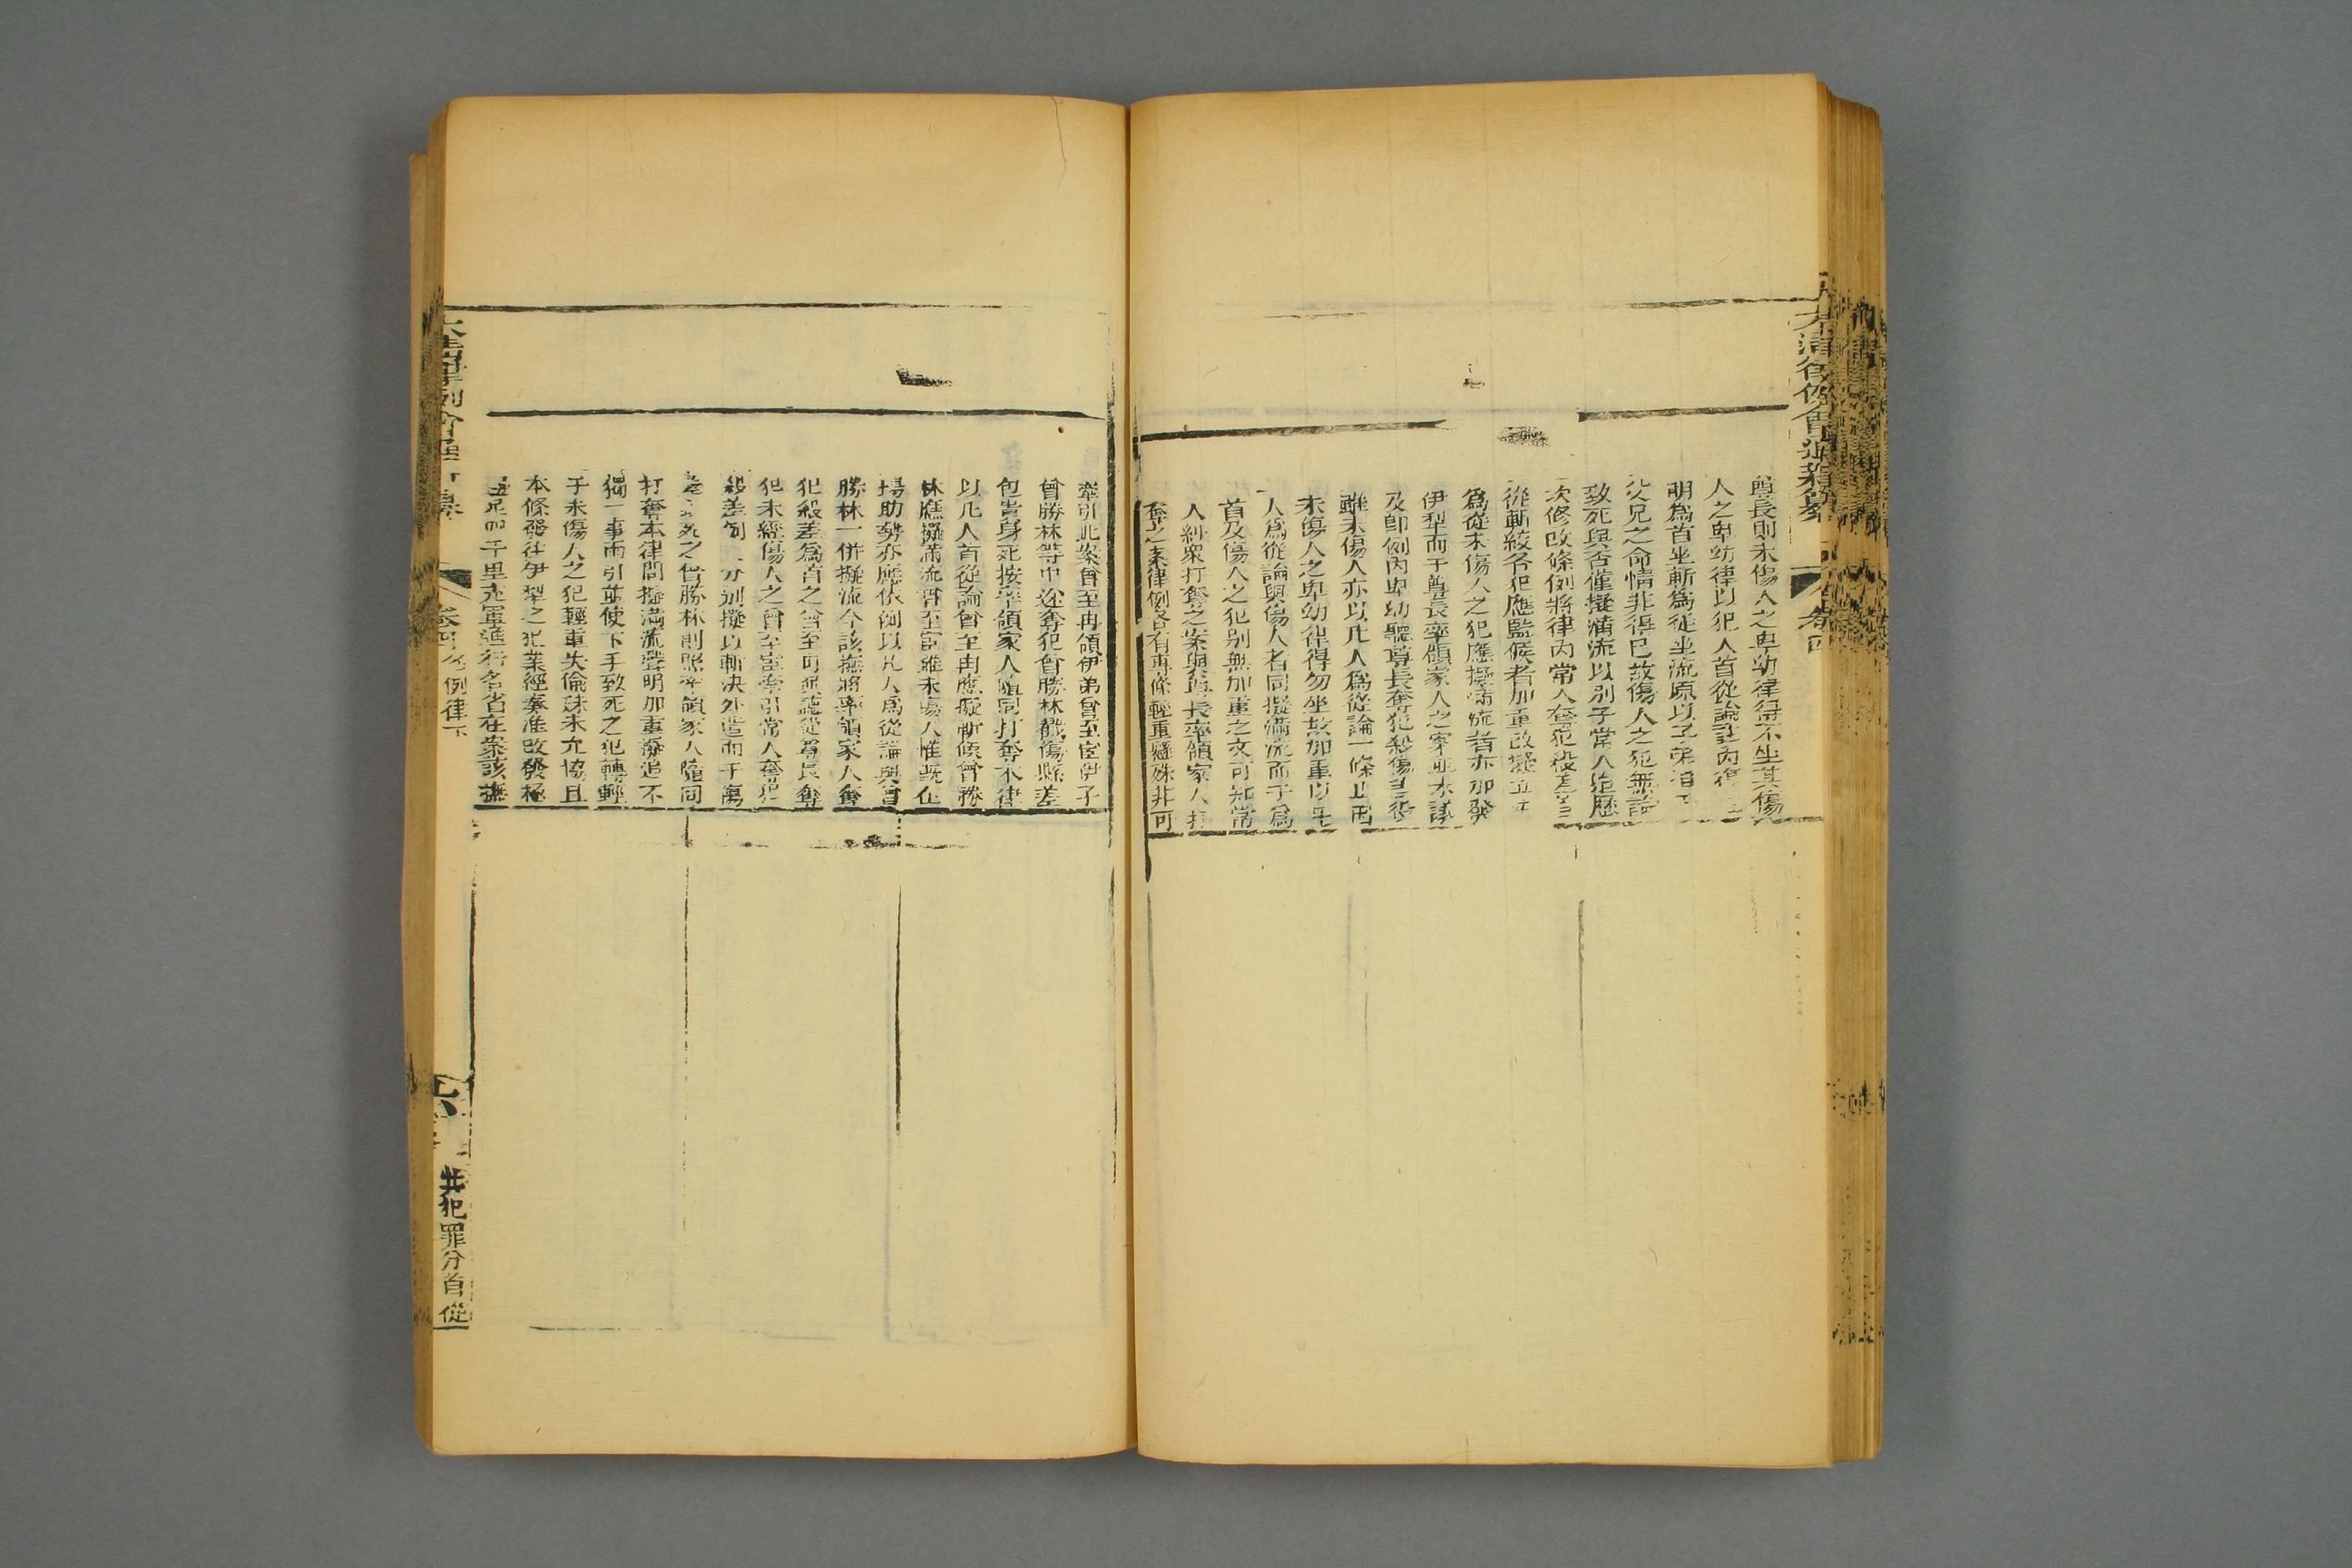 大清律例會通新纂
卷四
尊長則未傷人之卑幼律得不坐其傷
人之卑幼律以犯人首從論註內復
明爲首坐斬爲從坐流原以子弟
父兄之命情非得已故傷人之犯無論
致死與否僅擬滿流以別于常人迨歷
次修改條例將律內常人奪犯殺差
從斬絞各犯應監候者加重改擬立
爲從未傷人之犯應擬滿流者亦加發
伊犁而于尊長率領家人之案並未議
及卽例內卑幼聽尊長奪犯殺傷差役
雖未傷人亦以凡人爲從論一條止因
未傷人之卑幼律得勿坐故加重以凡
人爲從論與傷人者同擬滿流而于爲
首及傷人之犯別無加重之文可知常
人糾衆打奪之案與尊長率領家人打
奪之案律例各有專條輕重懸殊非可
牽引此案曾至冉領伊弟曾至宦伊子
曾勝林等中途奪犯曾勝林戳傷縣差
包貴身死按率領家人隨同打奪本律
以凡人首從論曾至冉應擬斬候曾勝
林應擬滿流曾至宦雖未傷人惟旣在
場助勢亦應依例以凡人爲從論與曾
勝林一併擬流今該撫將率領家人奪
犯殺差爲首之曾至冉與聽從尊長奪
犯未經傷人之曾至宦牽引常人奪犯
殺差例 分別擬以斬決外遣而于傷
差 死之曾勝林則照率領家人隨同
打奪本律問擬滿流聲明加重擬遣不
獨一事兩引並使下手致死之犯轉輕
于未傷人之犯輕重失倫殊未允協且
本條發往伊犁之犯業經奏准改發極
邊足四千里充軍進行各省在案該撫
卷四 名例律下
共犯罪分首從